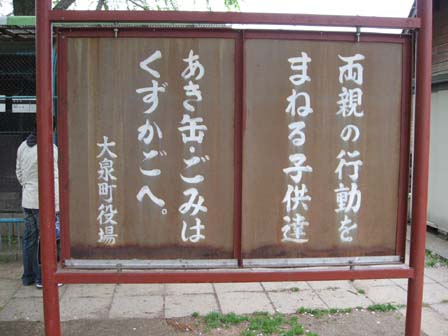 両親の行動を
まねる子供達
あき缶・ごみは
くずかごへ。
大泉町役場